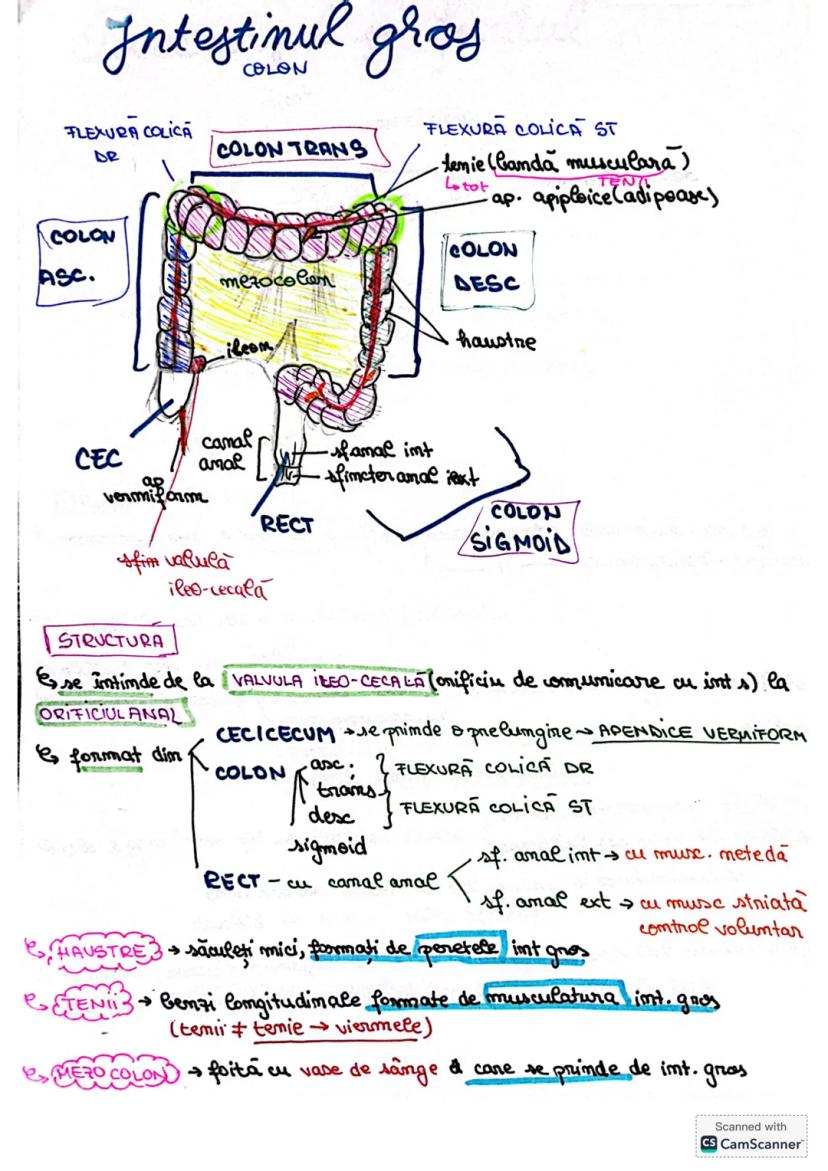 Intestinul gros
COLON
FLEXURĂ COLICĂ
DR
COLON TRANS
FLEXURĂ COLICĂ ST
tenie (bandă musculară)
↳ tot TENII
ap. apiploice (adipoase)
COLON
ASC.
COLON
DESC
mezocolon
haustre
ileon
CEC
canal
anal
sf anal int
sfincter anal ext
ap
vermiform
RECT
COLON
SIGMOID
sfin valvulă
ileo-cecală
STRUCTURA
↳ se întinde de la VALVULA ILEO-CECALĂ (orificiu de comunicare cu int s) la
ORIFICIUL ANAL
↳ format din
CEC/CECUM → se prinde o prelungire → APENDICE VERMIFORM
COLON asc. } FLEXURĂ COLICĂ DR
trans
desc } FLEXURĂ COLICĂ ST
sigmoid
RECT - cu canal anal
sf. anal int → cu musc. netedă
sf. anal ext → cu musc striată
control voluntar
↳ HAUSTRE → săculeți mici, formați de peretele int gros
↳ TENII → benzi longitudinale formate de musculatura int. gros
(tenii ≠ tenie → viermele)
↳ MEZOCOLON → foită cu vase de sânge & care se prinde de int. gros
Scanned with
CS CamScanner